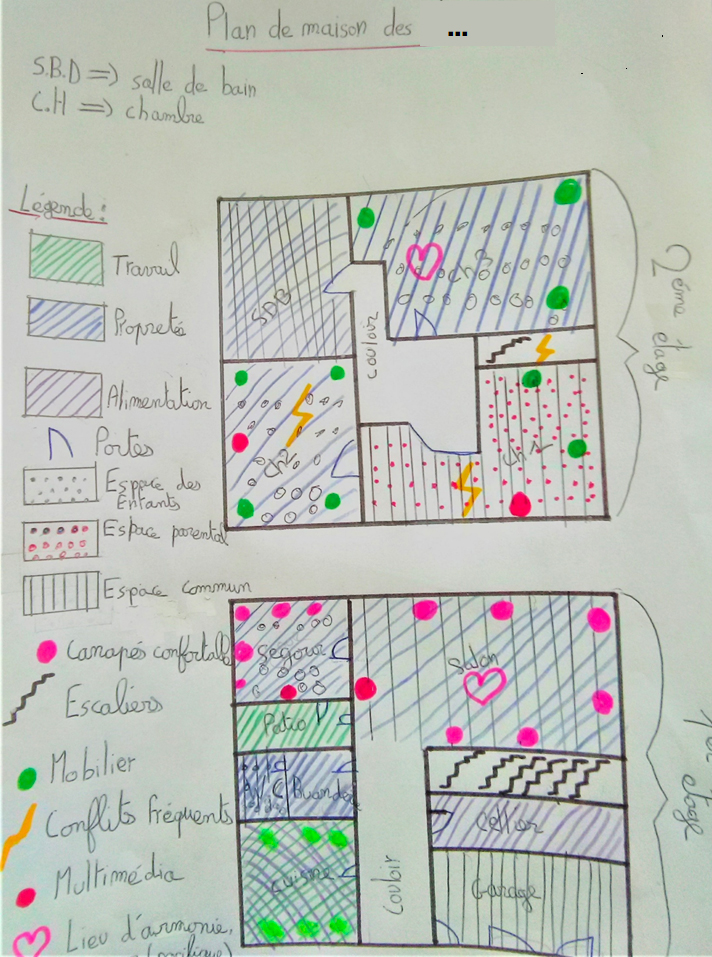 Plan de maison des ...
S.B.D => salle de bain
C.H => chambre
Légende :
Travail
Propreté
Alimentation
Portes
Espace des
Enfants
Espace parental
Espace commun
Canapés confortable
Escaliers
Mobilier
Conflits fréquents
Multimédia
Lieu d'armonie,
(pacifique)
2éme étage
SDB
couloir
ch3
ch2
ch1
étage
Séjour
Salon
Patio
W.C
Buanderie
Cellier
cuisine
couloir
Garage